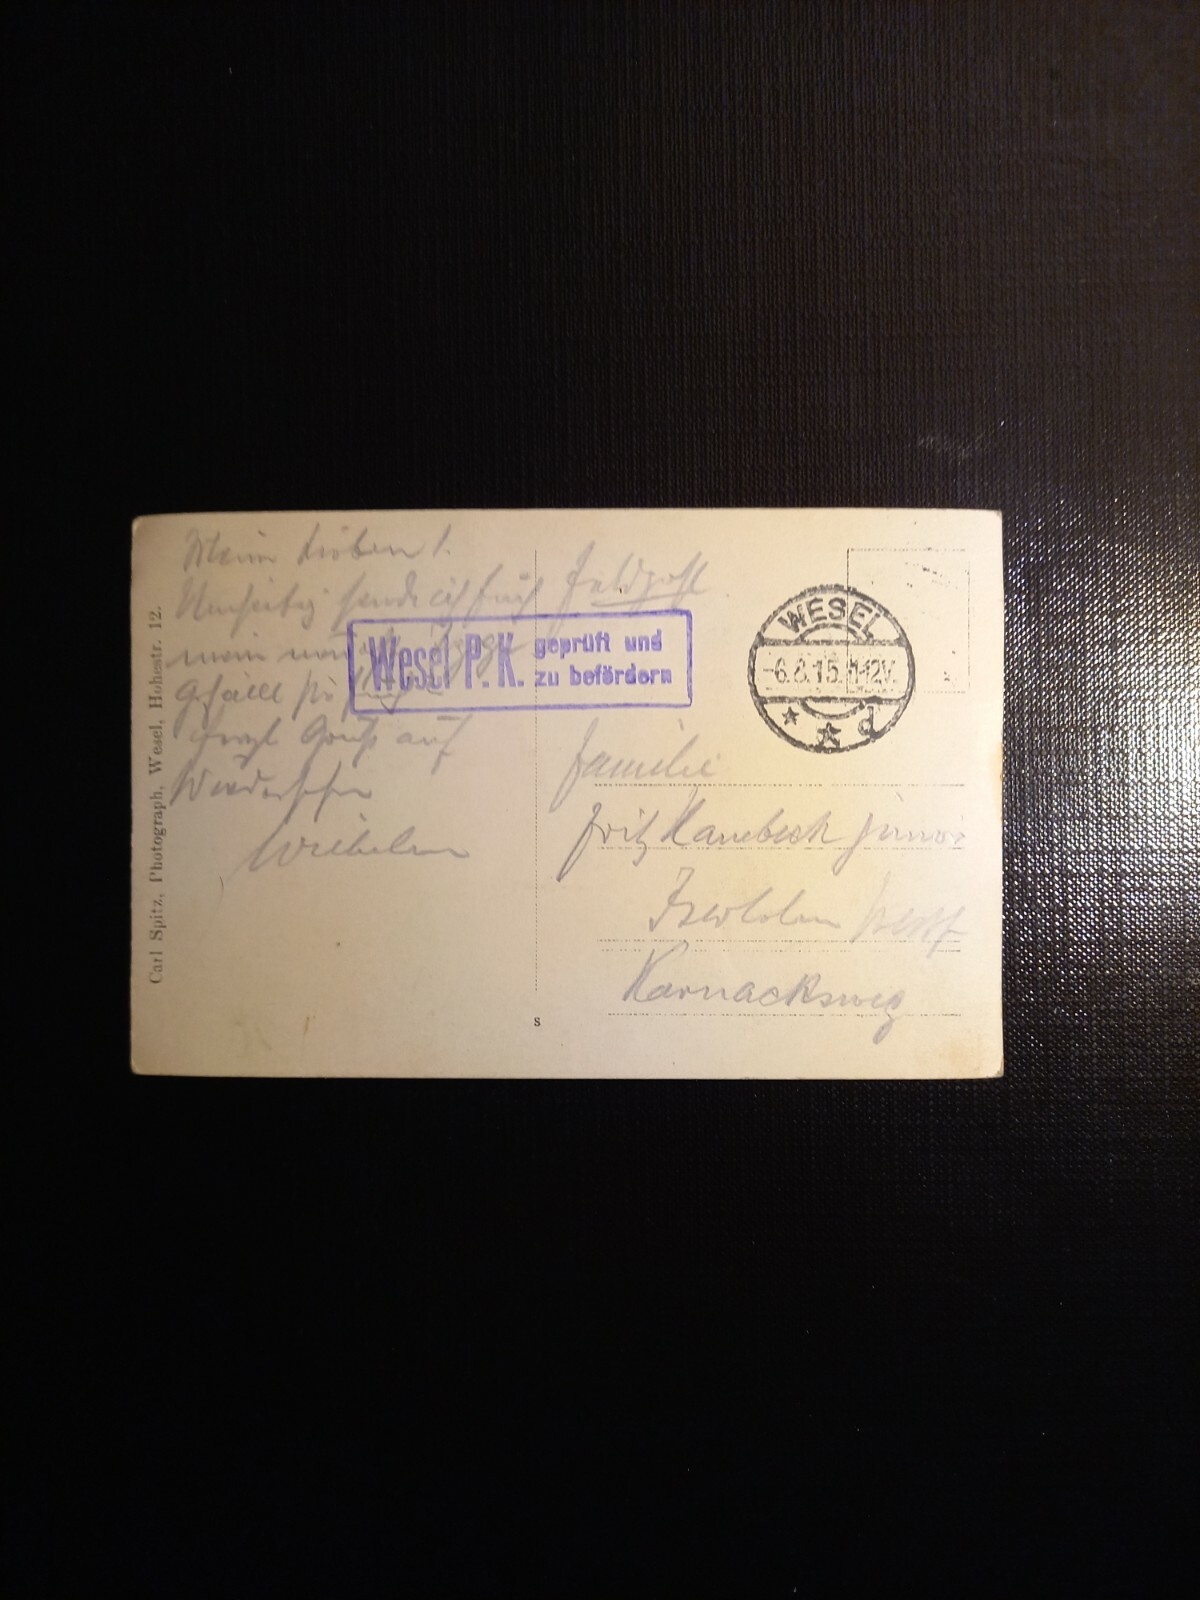 Meine Lieben!
Umseitig sende ich Euch
mein
Gefällt sie Euch
Herzl Gruß auf
Wiedersehen
Wilhelm
Feldpost
Wesel P. K. geprüft und
zu befördern
WESEL
-6.8.15.11-12V.
* * d
Familie
Fritz Kambeck junior
Iserlohn Westf
Karnacksweg
Carl Spitz, Photograph, Wesel, Hohestr. 12.
S